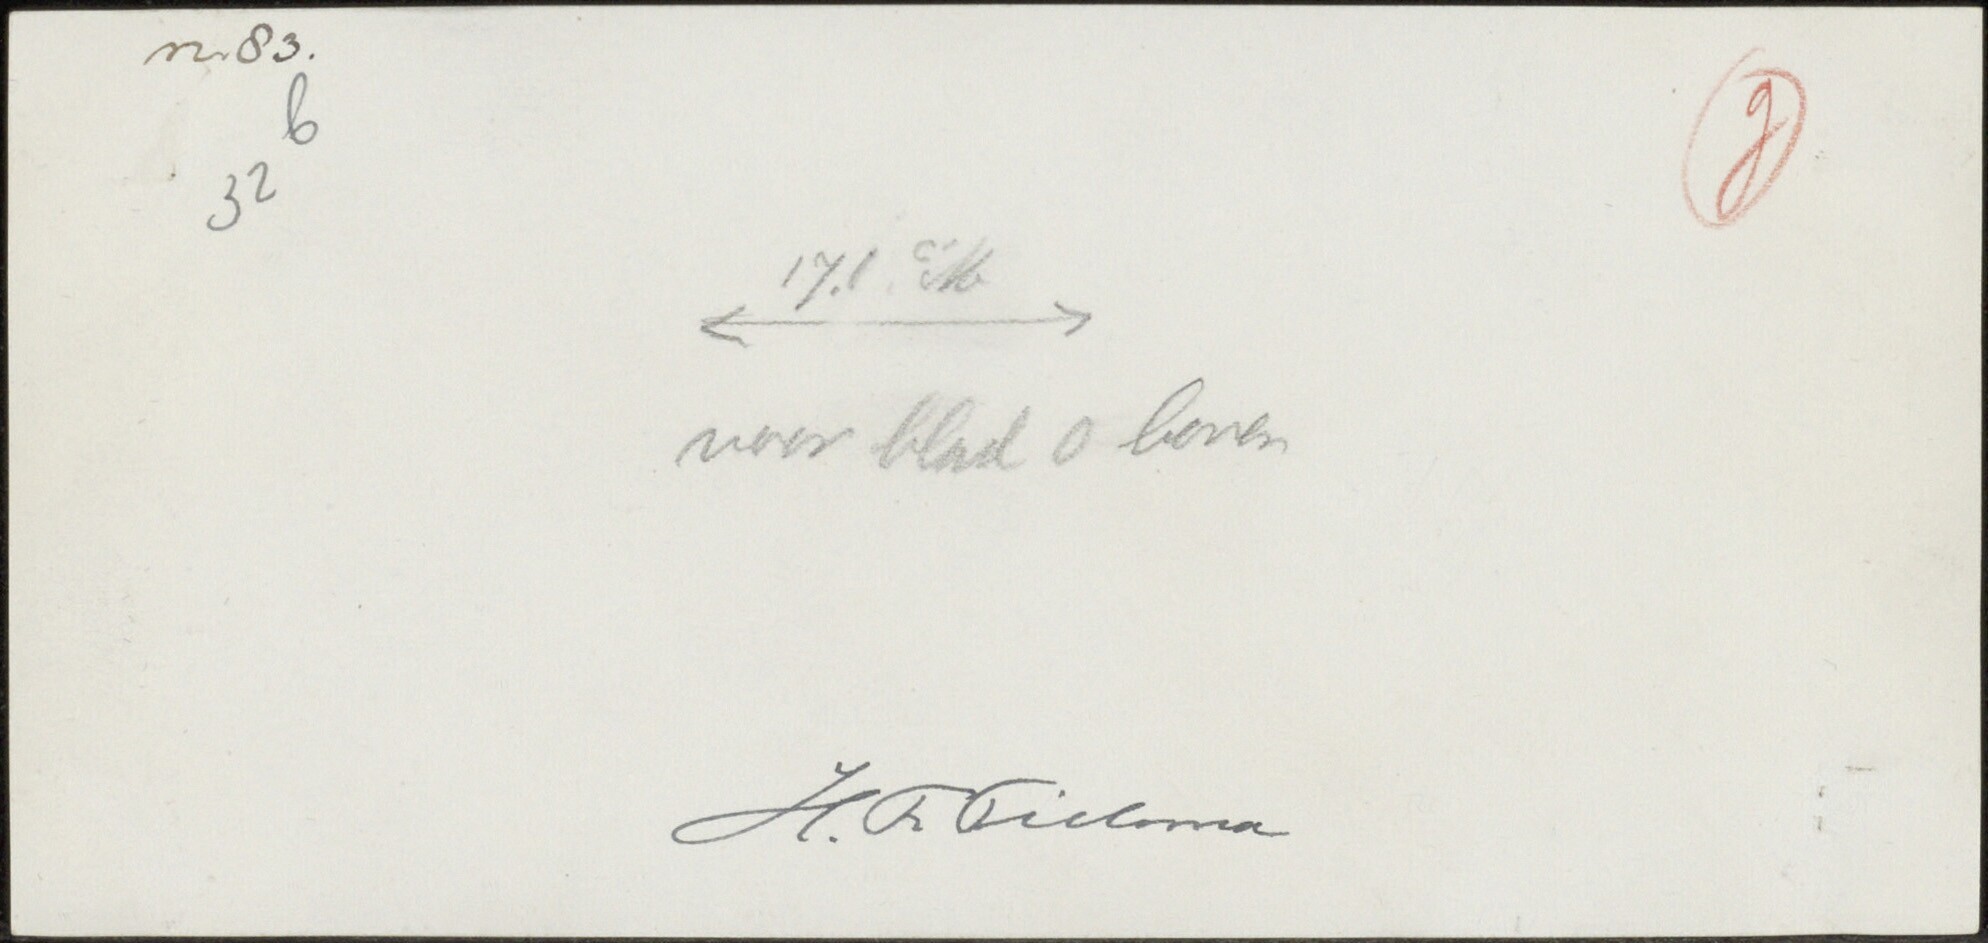 nr. 83.
b
32
g
17.1 cM
voor blad o boven
H. F. Tillema